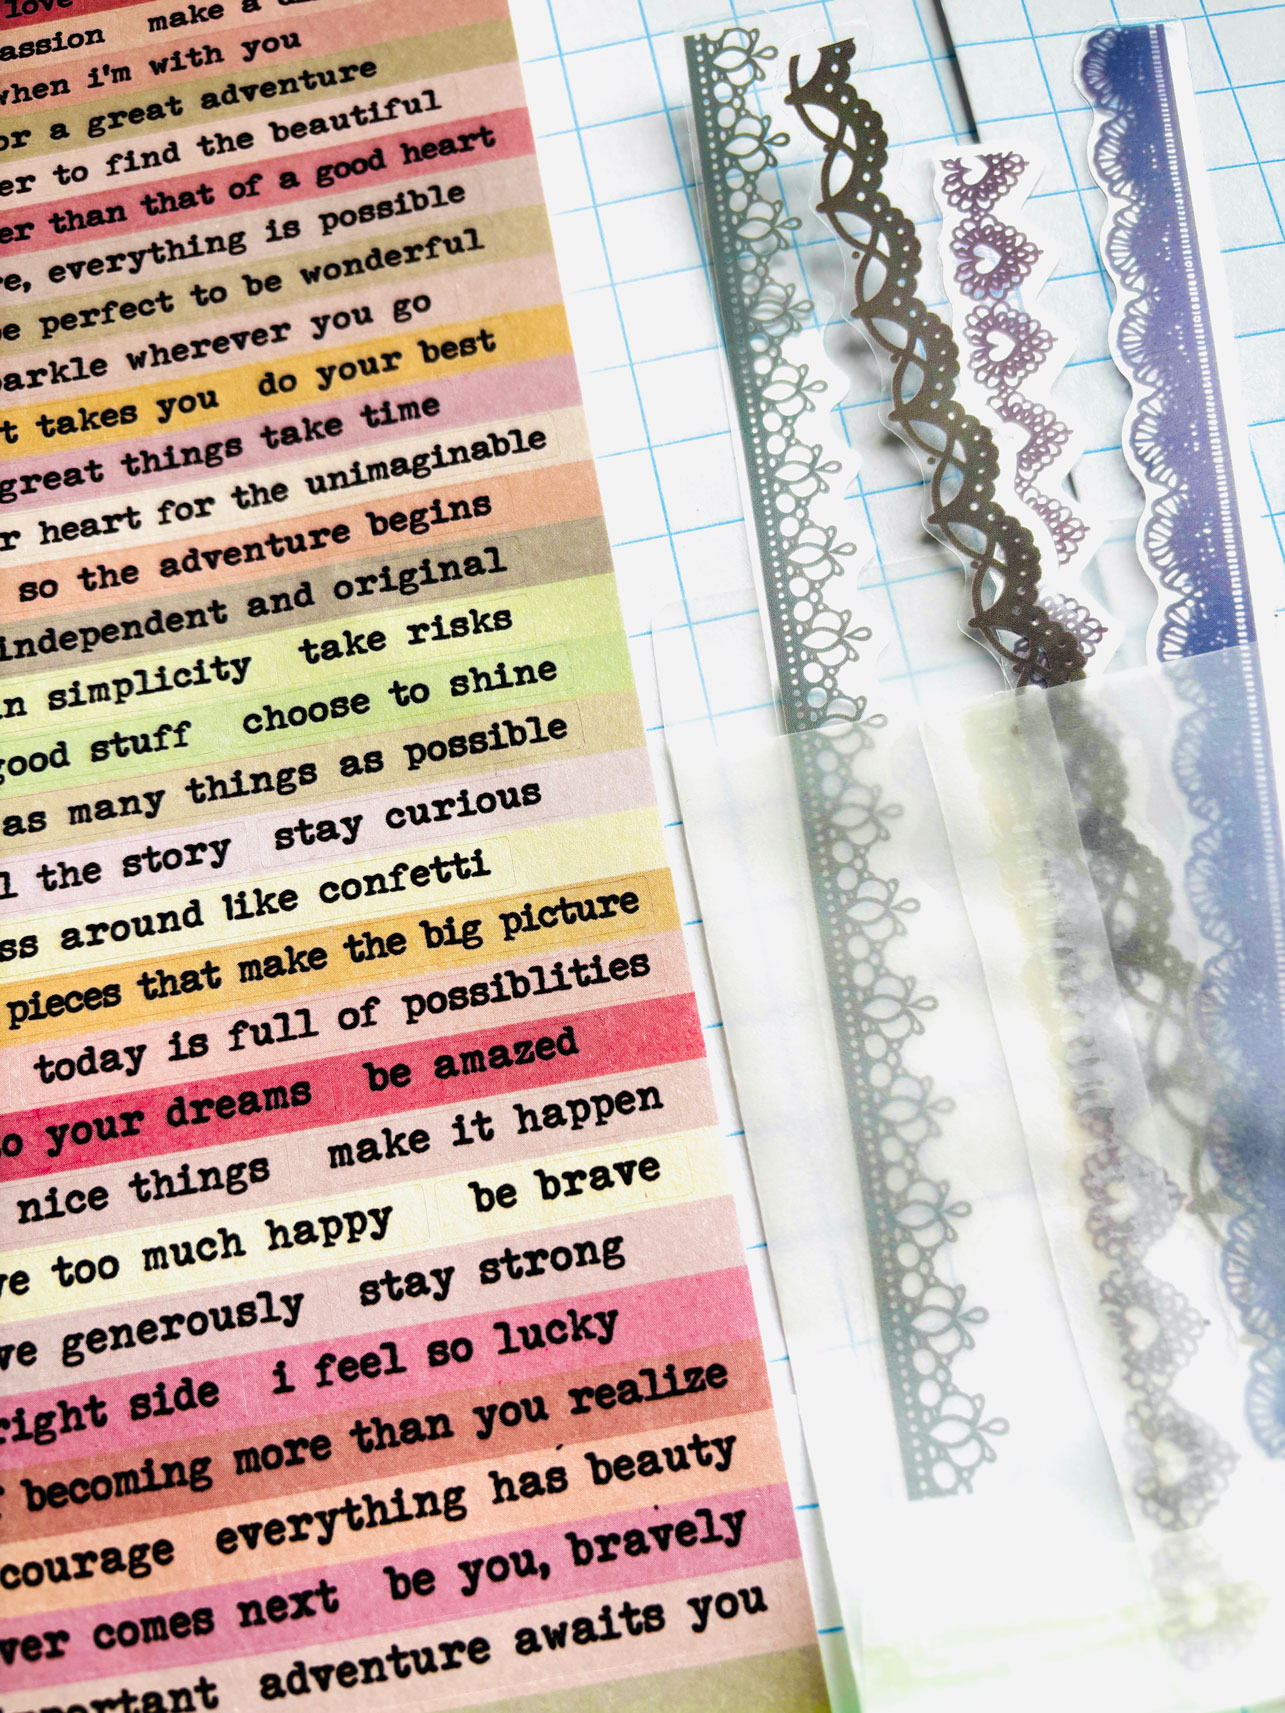 love
make a
when i'm with you
a great adventure
to find the beautiful
than that of a good heart
everything is possible
perfect to be wonderful
wherever you go
takes you do your best
great things take time
heart for the unimaginable
so the adventure begins
independent and original
simplicity take risks
good stuff choose to shine
as many things as possible
the story stay curious
around like confetti
pieces that make the big picture
today is full of possiblities
your dreams be amazed
nice things make it happen
too much happy be brave
generously stay strong
right side i feel so lucky
becoming more than you realize
courage everything has beauty
comes next be you, bravely
adventure awaits you